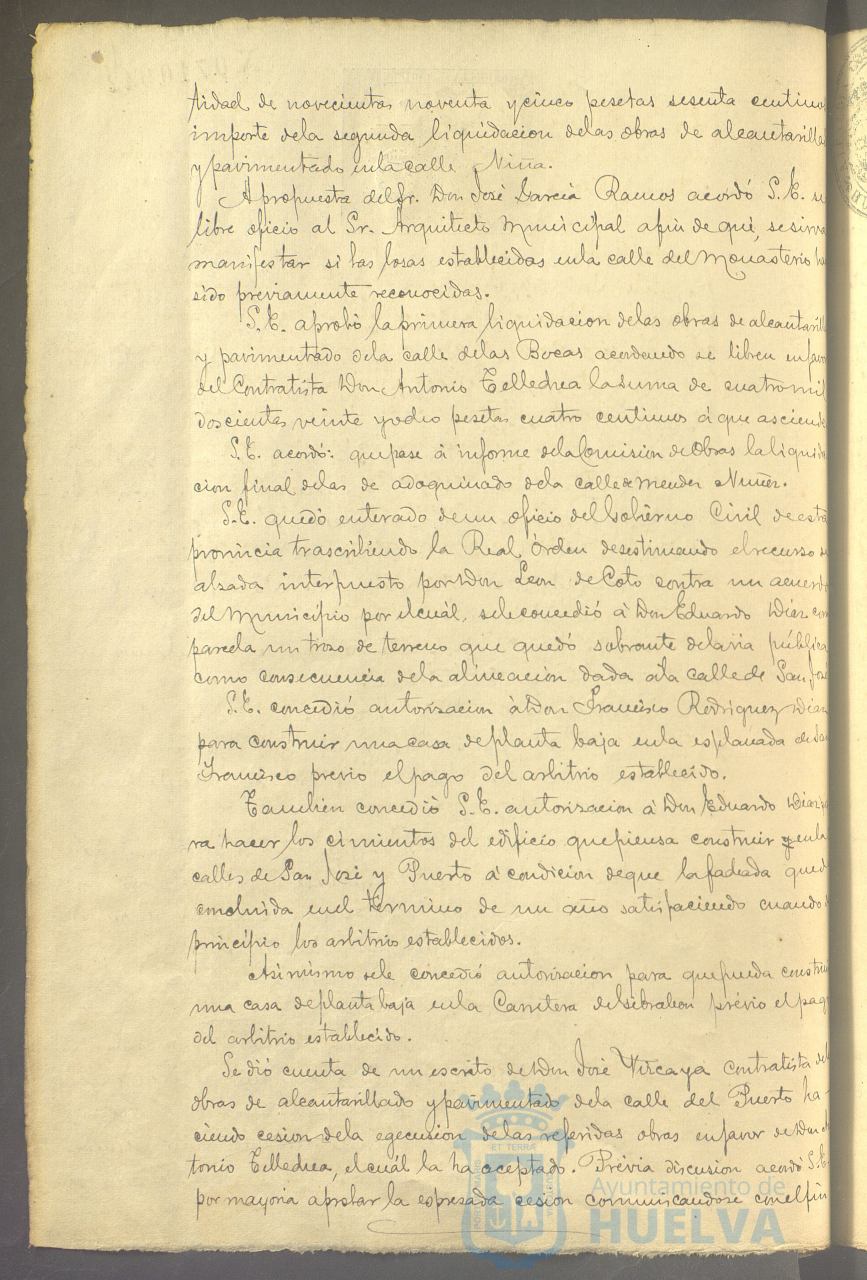 tidad de novecientas noventa y cinco pesetas sesenta centimo
importe dela segunda liquidacion delas obras de alcantarilla
y pavimentado enla calle Niña.
A propuesta del Sr. Don José Garcia Ramos acordó S.E. se
libre oficio al Sr. Arquitecto Municipal afin de que, sesirva
manifestar si las losas establecidas enla calle del Monasterio ha
sido previamente reconocidas.
S.E. aprobó la primera liquidacion delas obras de alcantarill
y pavimentado dela calle delas Bocas acordando se libren enfavo
del Contratista Don Antonio Telledrea la suma de cuatro mil
doscientas veinte y ocho pesetas cuatro centimos á que asciende
S.E. acordó: quepase á informe dela Comision de Obras la liquida
cion final delas de adoquinado dela calle de Mendez Nuñez.
S.E. quedó enterado de un oficio del Gobierno Civil de esta
provincia trascribiendo la Real Orden desestimando el recurso de
alzada interpuesto por Don Leon de Coto contra un acuerdo
del Municipio por el cuál, se le concedió á Don Eduardo Diaz com
parcela un trozo de terreno que quedó sobrante dela via pública
como consecuencia dela alineacion dada ala calle de San José
S.E. concedió autorizacion á Don Francisco Rodriguez Diaz
para construir una casa de planta baja enla esplanada de San
Francisco previo el pago del arbitrio establecido.
Tambien concedió S.E. autorizacion á Don Eduardo Diaz pa
ra hacer los cimientos del edificio que piensa construir enla
calles de San José y Puerto á condicion de que la fachada qued
concluida en el termino de un año satisfaciendo cuando dé
principio los arbitrios establecidos.
Asimismo se le concedió autorizacion para que pueda construi
una casa de planta baja enla Carretera de Gibraleon prévio el pago
del arbitrio establecido.
Se dió cuenta de un escrito de Don José Vizcaya contratista del
obras de alcantarillado y pavimentado dela calle del Puerto ha-
ciendo cesion dela egecusion delas referidas obras enfavor de Don An
tonio Telledrea, el cuál la ha aceptado. Prévia discusion acordó S.E.
por mayoria aprobar la espresada cesion comunicandose con el fin
Ayuntamiento de
HUELVA